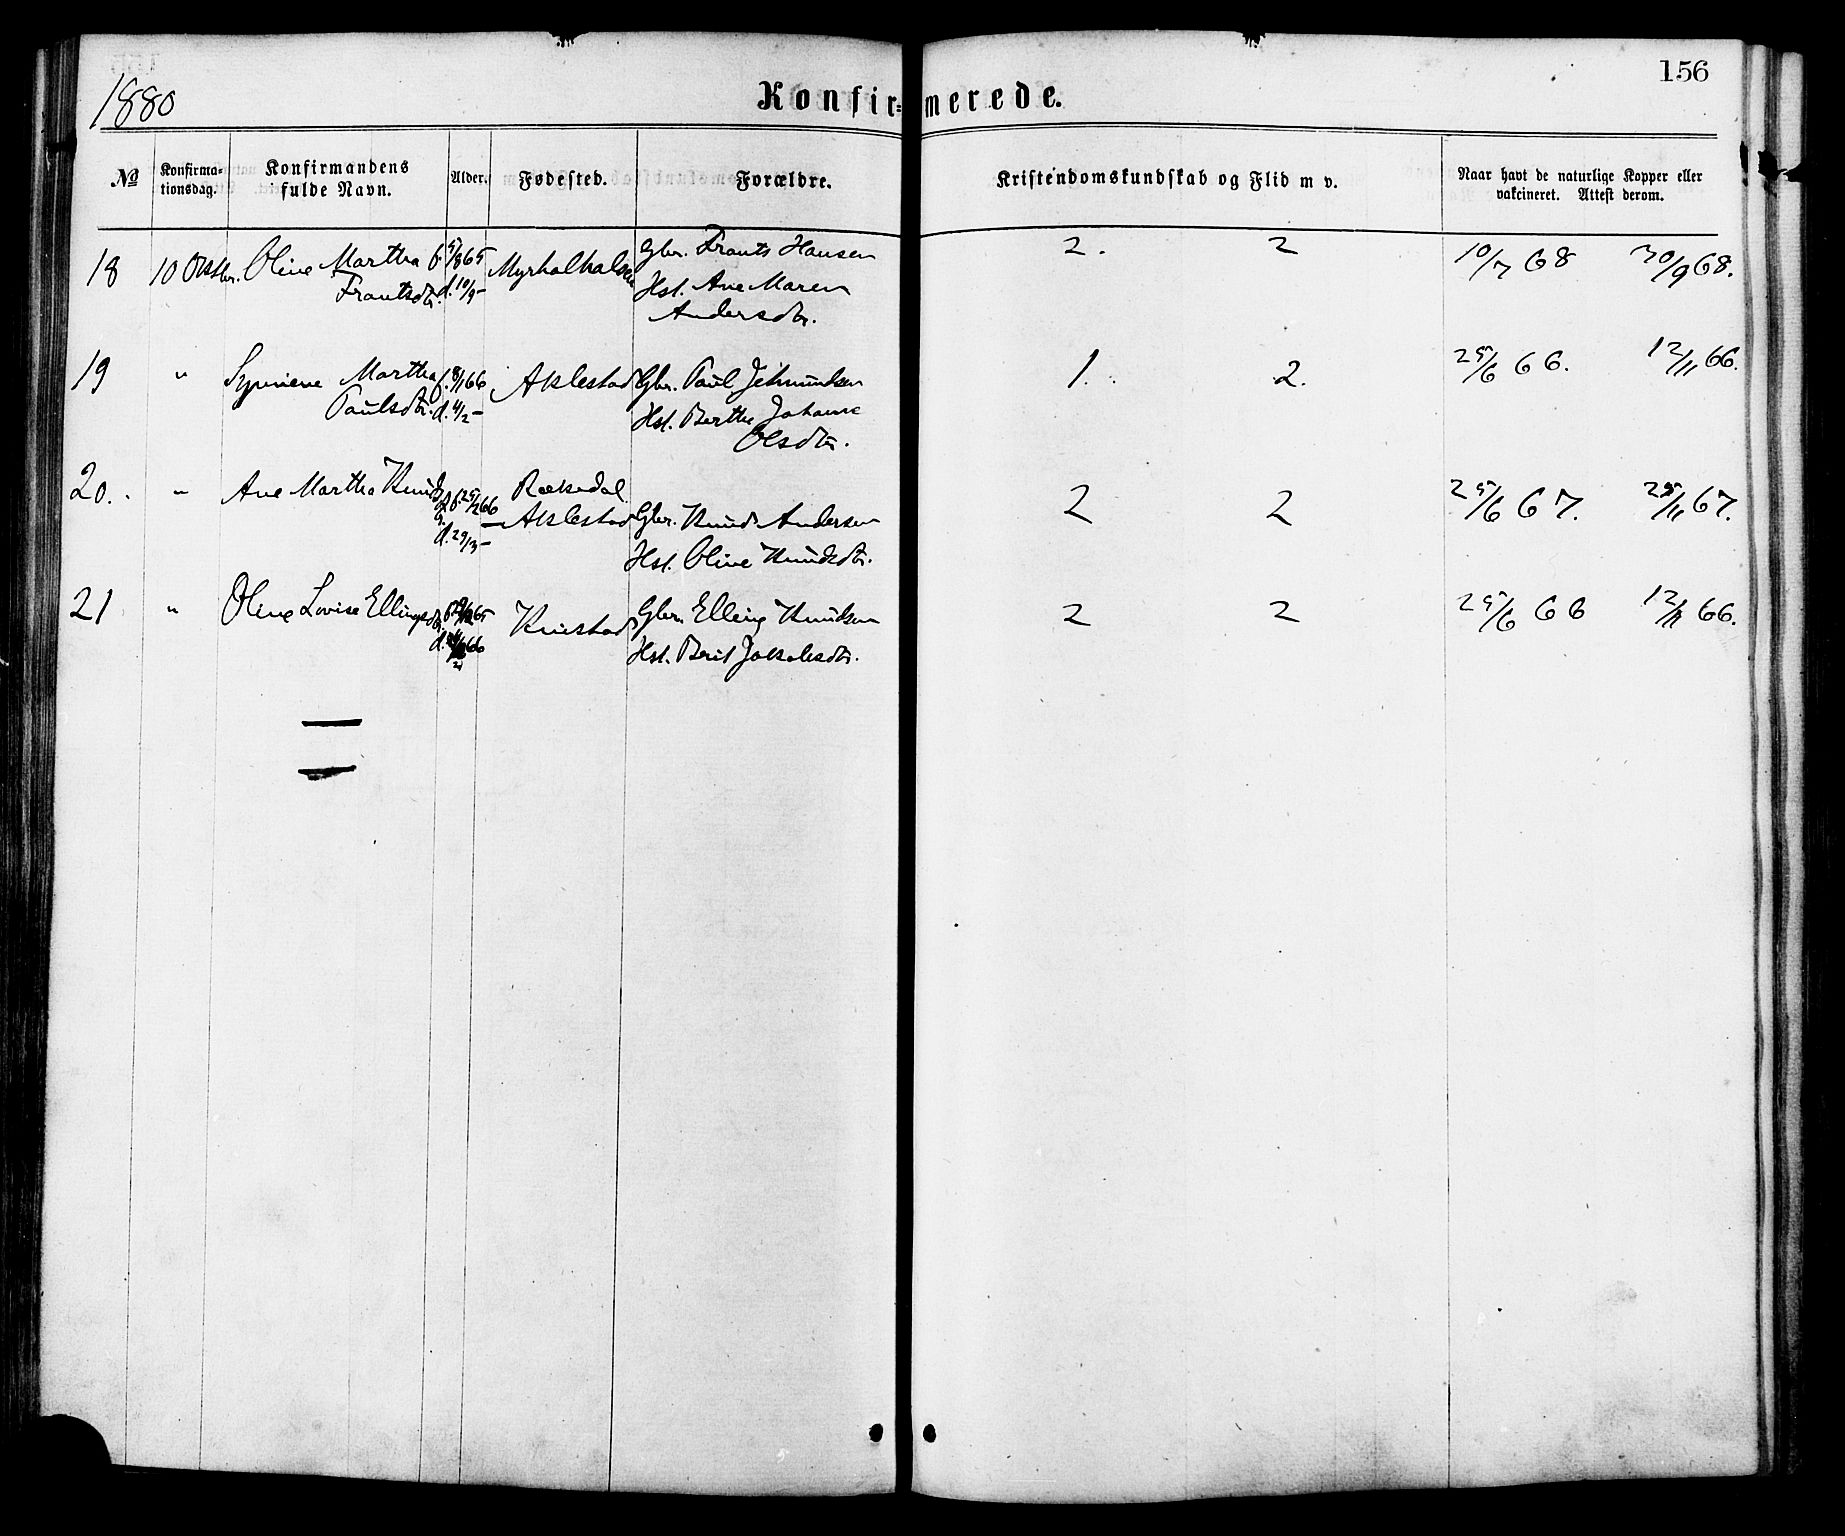 156
1880
Konfir= merede.
№ Konfirma-tionsdag. Konfirmandens fulde Navn. Alder. Fødested. Forældre. Kristendomskundskab og Flid m v. Naar havt de naturlige Kopper eller vakcineret. Attest derom.
18 10 Oktbr. Oline Martha f. 5/8 65 Gbr. Frants Hansen 2. 2 10/7 68 30/9 68.
Frantsdtr. d. 10/9 - Hst. Ane Maren
Andersdtr.
19 " Martha f. 8/1 66 Akslestad Gbr. Paul Jetmundsen 1. 2. 25/6 66. 12/11 66.
Paulsdtr. d. 4/2 - Hst. Berthe Johanne
Olsdtr.
20. " Ane Martha Knudsdtr. f. 25/2 66 Rækedal 2 2 25/6 67. 25/11 67.
d. 29/3 - Akslestad Gbr. Knud Andersen
Hst. Oline Knudsdtr.
21 " Oline Lovise Ellingsdtr. Gbr. Elling Knudsen 2 2 25/6 66 12/11 66.
Hst. Berit Jakobsdtr.